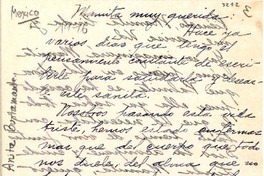 3212
3
MEXICO
Mamita muy querida:
Hace ya
varios días que tengo el
pensamiento constante de escri-
birle para saludarla y
si está sanita.
Nosotros pasando esta
triste, hemos estado enfermos
mas que del cuerpo que todo
nos duele, del alma que no
Anita Bustamante